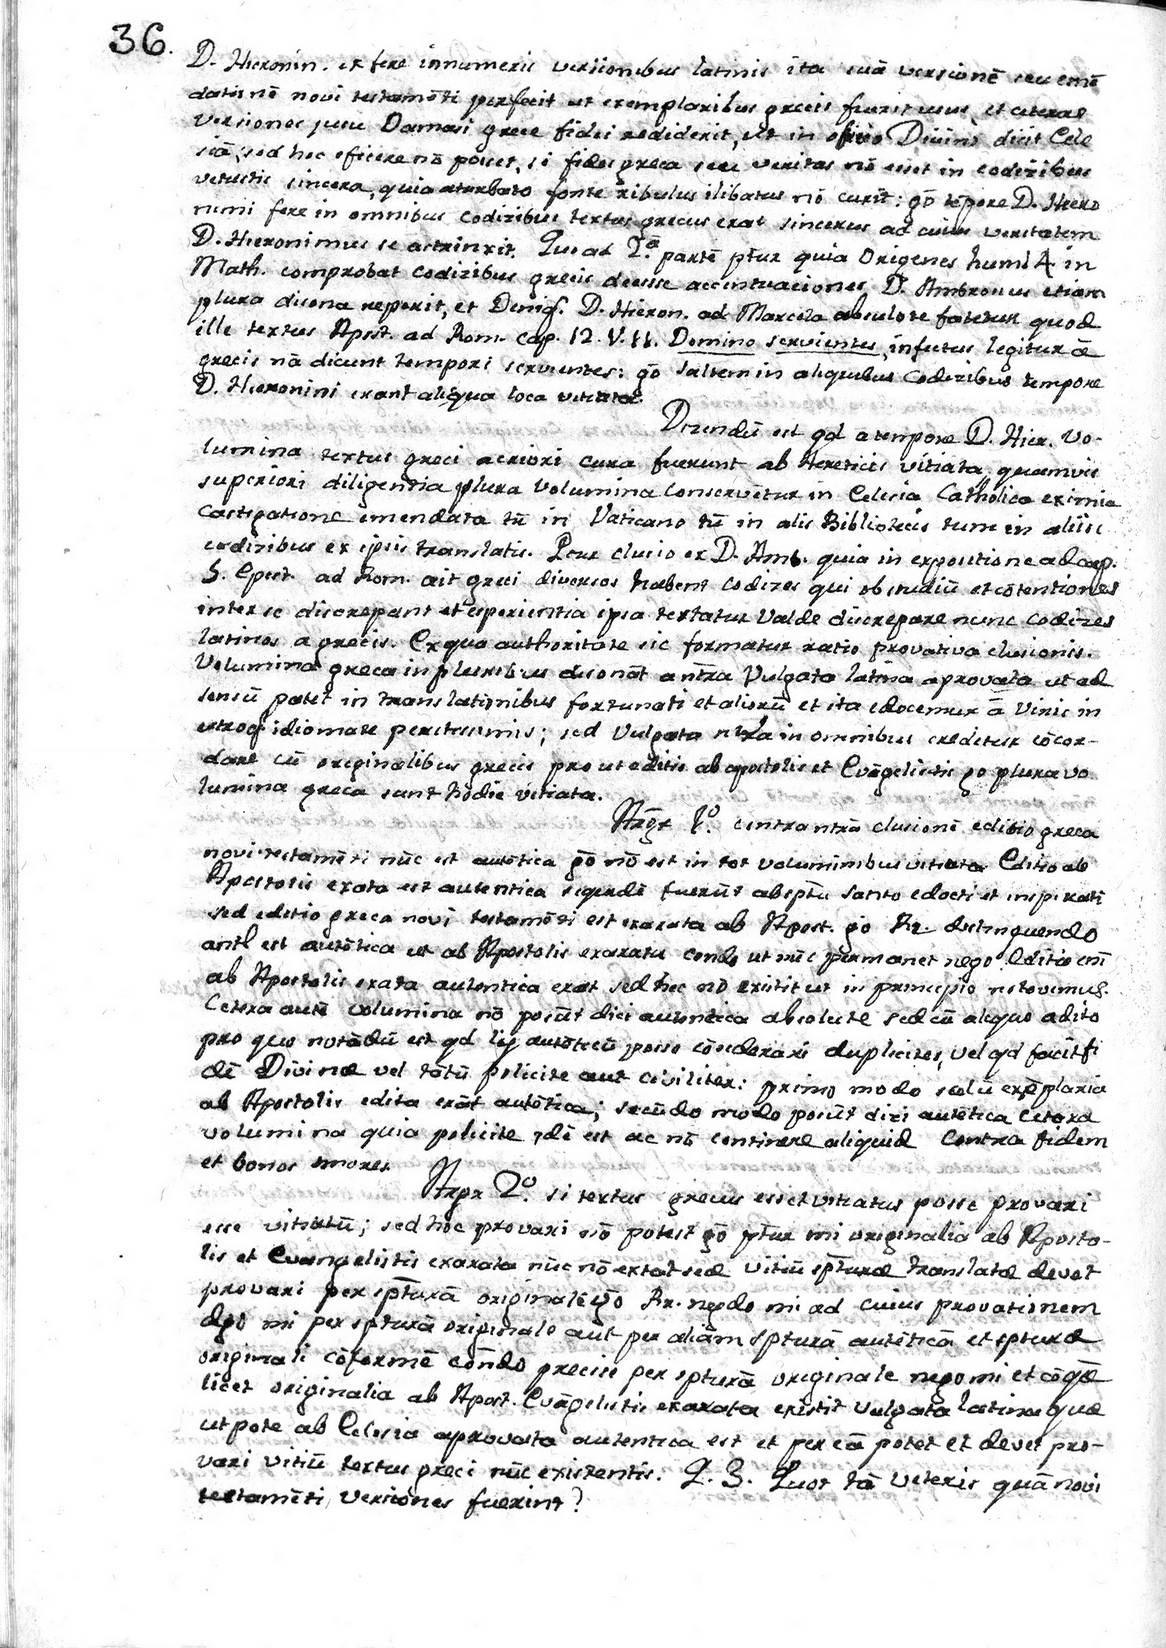 36.
D. Hieronin. ex fere innumeris versionibus latinis ita suã versionẽ seu emẽ
datinẽ novi testamẽti perfecit ut exemplaribus grecis fuerit usus, et ceteras
versiones jusu Damasi grece fidei rediderit, ut in oficio Divino dicit Ecle
siã, sed hoc eficere nõ poset, si fides greca seu veritas nõ eset in codizibus
vetustis sincera, quia aturbato fonte ribulus ilibatus nõ curit: gõ tẽpore D. Hiero
nimi fere in omnibus codizibus textus grecus erat sincerus ad cuius veritatem
D. Hieronimus se astrinxit. Quoad 2.ª partẽ ptur quia Origenes humil 4 in
Math. comprobat codizibus grecis deesse accentuaciones D. Ambrosius etiam
plura disona reperit, et Deniq. D. Hieron. ad Marcela absolute fatetur quod
ille textus Apst. ad Rom. cap. 12. V. 11. Domino servientes, infectus legitur ẽ
grecis nã dicunt tempori servientes: gõ saltem in aliquibus codizibus tempore
D. Hieronini erant aliqua loca vitiata.
Dizendũ est qd a tempore D. Hier. vo-
lumina textus greci acriori cura fuerunt ab Hereticis vitiata, quamvis
superiori diligentia plura volumina conservẽtur in Eclesia Catholica eximia
castigatione emendata tũ in Vaticano tũ in aliis Bibliotecis tum in aliis
codizibus ex ipsis translatis. Ptur clusio ex D. Amb. quia in expositione ad cap.
5. Epist. ad Rom. ait greci diversos habent codizes qui ob studiũ et cõtentiones
inter se discrepant et esperientia ipsa testatur valde discrepare nunc codizes
latinos a grecis. Ex qua authoritate sic formatur ratio provativa clusionis.
Volumina greca in pluribus disonãt a ntra Vulgata latina aprovata ut ad
sensũ patet in translationibus fortunati et aliorũ et ita edocemur ã Viris in
utroq idiomate peritissimis; sed Vulgata ntra in omnibus creditur cõcor-
dare cũ originalibus grecis prout editis ab apostolis et Evãgelistis gõ plura vo
lumina greca sunt hodie vitiata.
Argr 1.º contra ntrã clusionẽ editio greca
novi testamẽti nũc est autẽtica gõ nõ est in tot voluminibus vitiata. Editio ab
Apostolis exata est autentica siquidẽ fuerũt ab sptu santo edocti et inspirati
sed editio greca novi testamẽti est exarata ab Apost. gõ Rr. distinguendo
antl est autẽtica ut ab Apostolis exarata condo ut nũc permanet nego. Editio enĩ
ab Apostolis exata autentica erat sed hec nõ existit ut in principio notovimus.
Cetera autẽ volumina nõ posũt dici autentica absolute sed cũ aliquo adito
pro quo notãdũ est qd autẽticũ posse cõsiderari dupliciter, vel qd facit fi
dẽ Divinã vel tãtũ policite aut civiliter: primo modo solũ exẽplaria
ab Apostolis edita erãt autẽtica; secũdo modo posũt dizi autẽtica cetera
volumina quia policite idẽ est ac nõ continere aliquid contra fidem
et bonos mores.
Argr 2.º si textus grecus esset vitiatus posse provari
esse vitiatũ; sed hoc provari nõ potest gõ ptur mi originalia ab Aposto-
lis et Evangelistis exarata nũc nõ extãt sed vitiũ spturæ translatæ devet
provari per spturã originalẽ gõ Rr. negdo mi ad cuius provationem
dgo mi per spturã originale aut per aliãm spturã autẽticã et spturæ
originali cõformẽ cõndo precise per spturã originale nego mi et cõqã
licet originalia ab Apost. Evãgelistis exarata existit Vulgata latina quæ
utpote ab Eclesia aprovata autentica est et per eã potet et devet pro-
vari vitiũ textus greci nũc existentis. Q. 3. Quot tã veteris quã novi
testamẽti versiones fuerint?